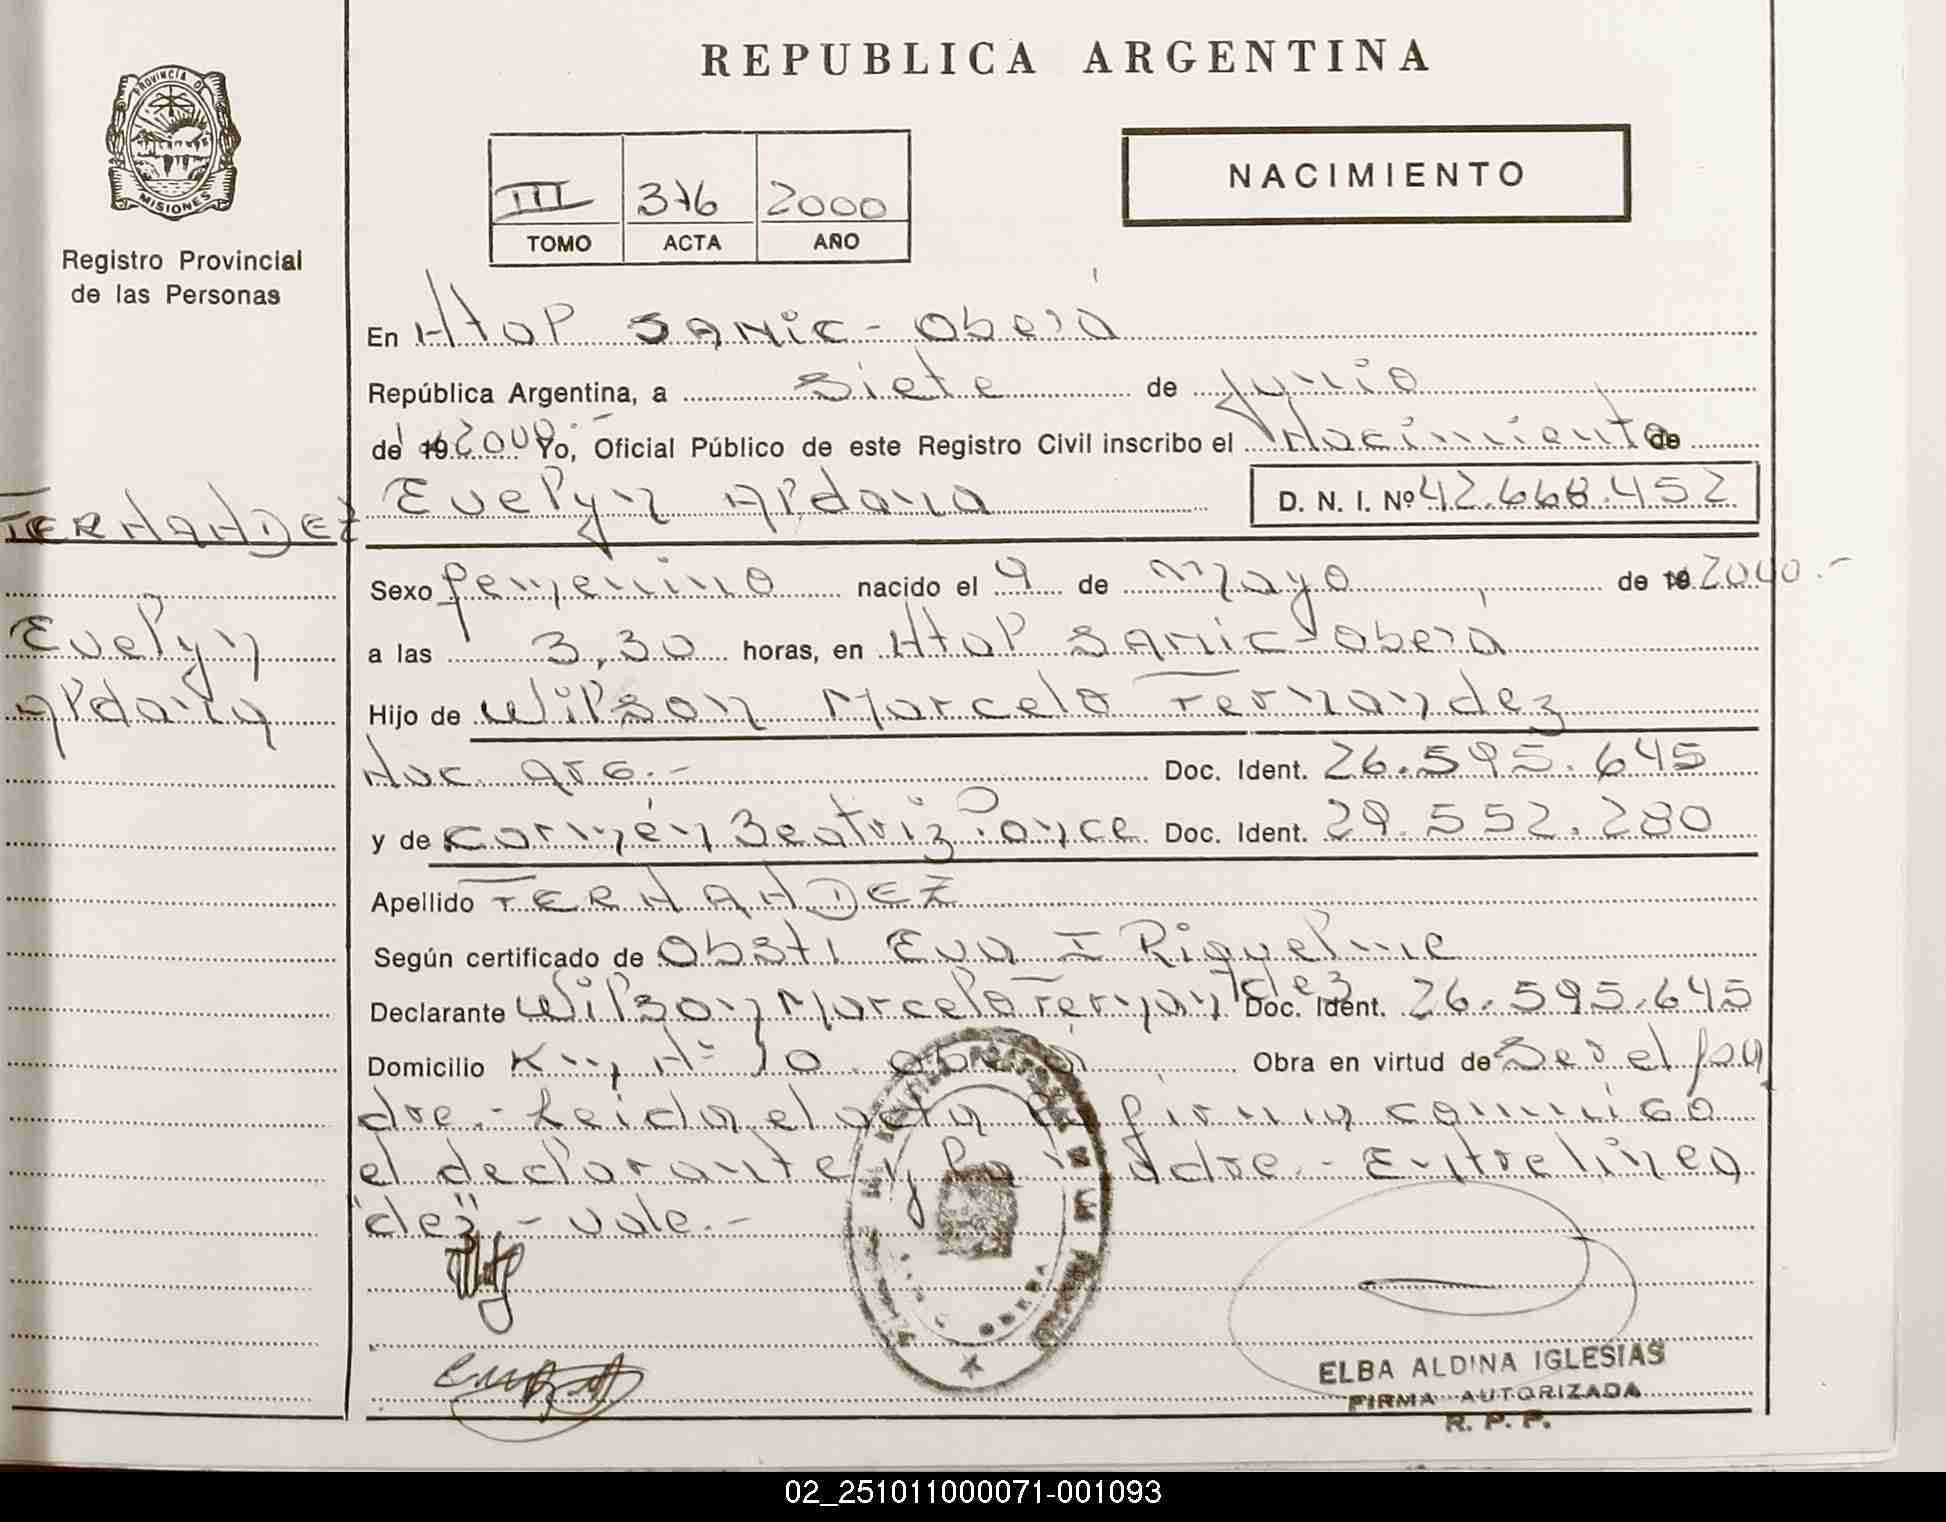 REPUBLICA ARGENTINA
PROVINCIA DE MISIONES
Registro Provincial
de las Personas
III 376 2000
TOMO ACTA AÑO
NACIMIENTO
En Htal SAMIC - Oberá
República Argentina, a siete de junio
de 19 2000.- Yo, Oficial Público de este Registro Civil inscribo el Nacimiento de
Evelyn Aldana D. N. I. Nº 42.668.452
FERNANDEZ
Evelyn
Aldana
Sexo femenino nacido el 9 de Mayo de 19 2000.-
a las 3,30 horas, en Htal SAMIC - Oberá
Hijo de Wilson Marcelo Fernandez
Nac. Arg.- Doc. Ident. 26.595.645
y de Carmen Beatriz Ponce Doc. Ident. 29.552.280
Apellido FERNANDEZ
Según certificado de Obst. Eva I Riquelme
Declarante Wilson Marcelo Fernan dez Doc. Ident. 26.595.645
Domicilio Km Nº 10 Oberá Obra en virtud de ser el pa
dre.- Leida el acta la firman conmigo
el declarante y la madre.- Entrelinea
"dez".- Vale.-
OBERA
ELBA ALDINA IGLESIAS
FIRMA AUTORIZADA
R. P. P.
02_251011000071-001093